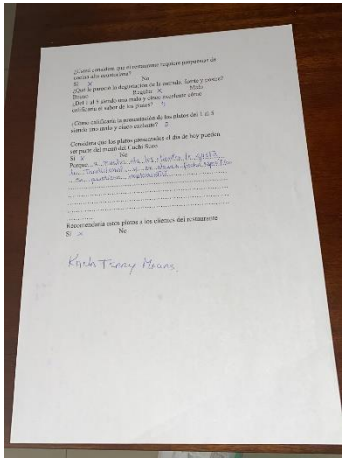 ¿Usted considera que el restaurante requiere propuestas de
cocina alto mirandina?
Si x No
¿Qué le pareció la degustación de la entrada, fuerte y postre?
Bueno Regular x Malo
¿Del 1 al 5 siendo uno malo y cinco excelente cómo
calificaría el sabor de los platos? 4
¿Cómo calificaría la presentación de los platos del 1 al 5
siendo uno malo y cinco excelente? 3
Considera que los platos presentados el día de hoy pueden
ser parte del menú del Cuchi Suco
Si x No
Porque a muchos de los clientes le gusta
lo tradicional
Recomendaría estos platos a los clientes del restaurante
Si x No